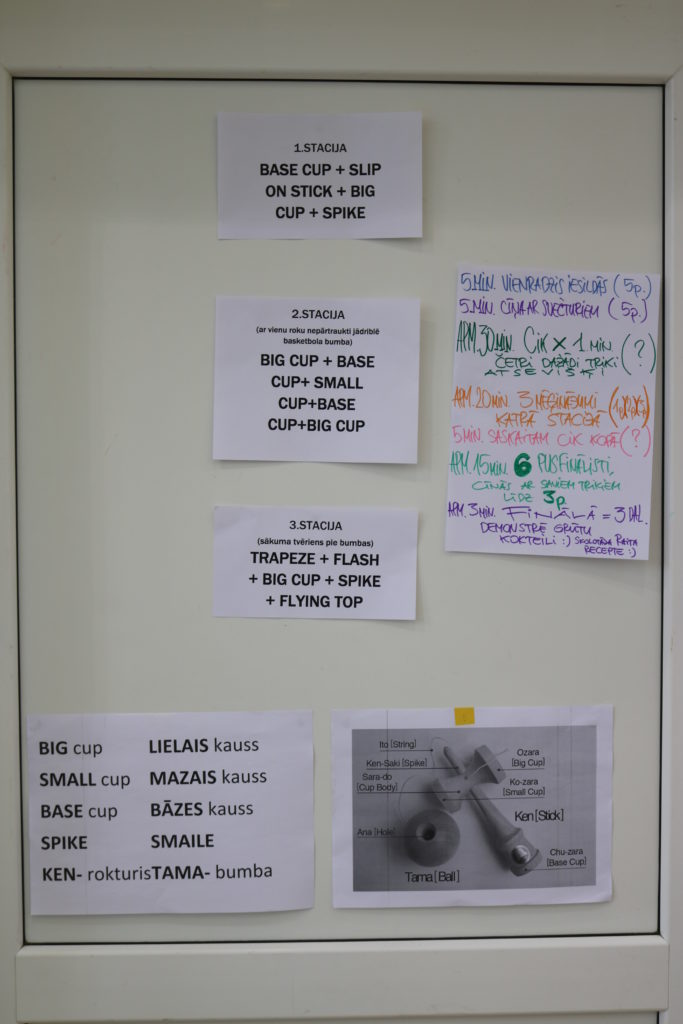 1.STACIJA
BASE CUP + SLIP
ON STICK + BIG
CUP + SPIKE
2.STACIJA
(ar vienu roku nepārtraukti jādriblē
basketbola bumba)
BIG CUP + BASE
CUP+ SMALL
CUP+BASE
CUP+BIG CUP
3.STACIJA
(sākuma tvēriens pie bumbas)
TRAPEZE + FLASH
+ BIG CUP + SPIKE
+ FLYING TOP
5 MIN. VIENRADZIS IESILDĀS (5p.)
5 MIN. CĪŅA AR SVEČTURIEM (5p.)
APM. 30 MIN. CIK × 1 MIN.
ČETRI DAŽĀDI TRIKI (?)
ATSEVIŠĶI
APM. 20 MIN. 3 MĒĢINĀJUMI
KATRĀ STACIJĀ
5 MIN. SASKAITAM CIK KOPĀ (?)
APM. 15 MIN. 6 PUSFINĀLISTI
CĪNĀS AR SAVIEM TRIKIEM
LĪDZ 3p.
APM. 3 MIN. FINĀLĀ = 3 DAL.
DEMONSTRĒ GRŪTU
KOKTEILI :) SKOLOTĀJA RAITA
RECEPTE :)
BIG cup LIELAIS kauss
SMALL cup MAZAIS kauss
BASE cup BĀZES kauss
SPIKE SMAILE
KEN- rokturis TAMA- bumba
Ito [String]
Ken-Saki [Spike]
Sara-do
[Cup Body]
Ana [Hole]
Tama [Ball]
Ozara
[Big Cup]
Ko-zara
[Small Cup]
Ken [Stick]
Chu-zara
[Base Cup]